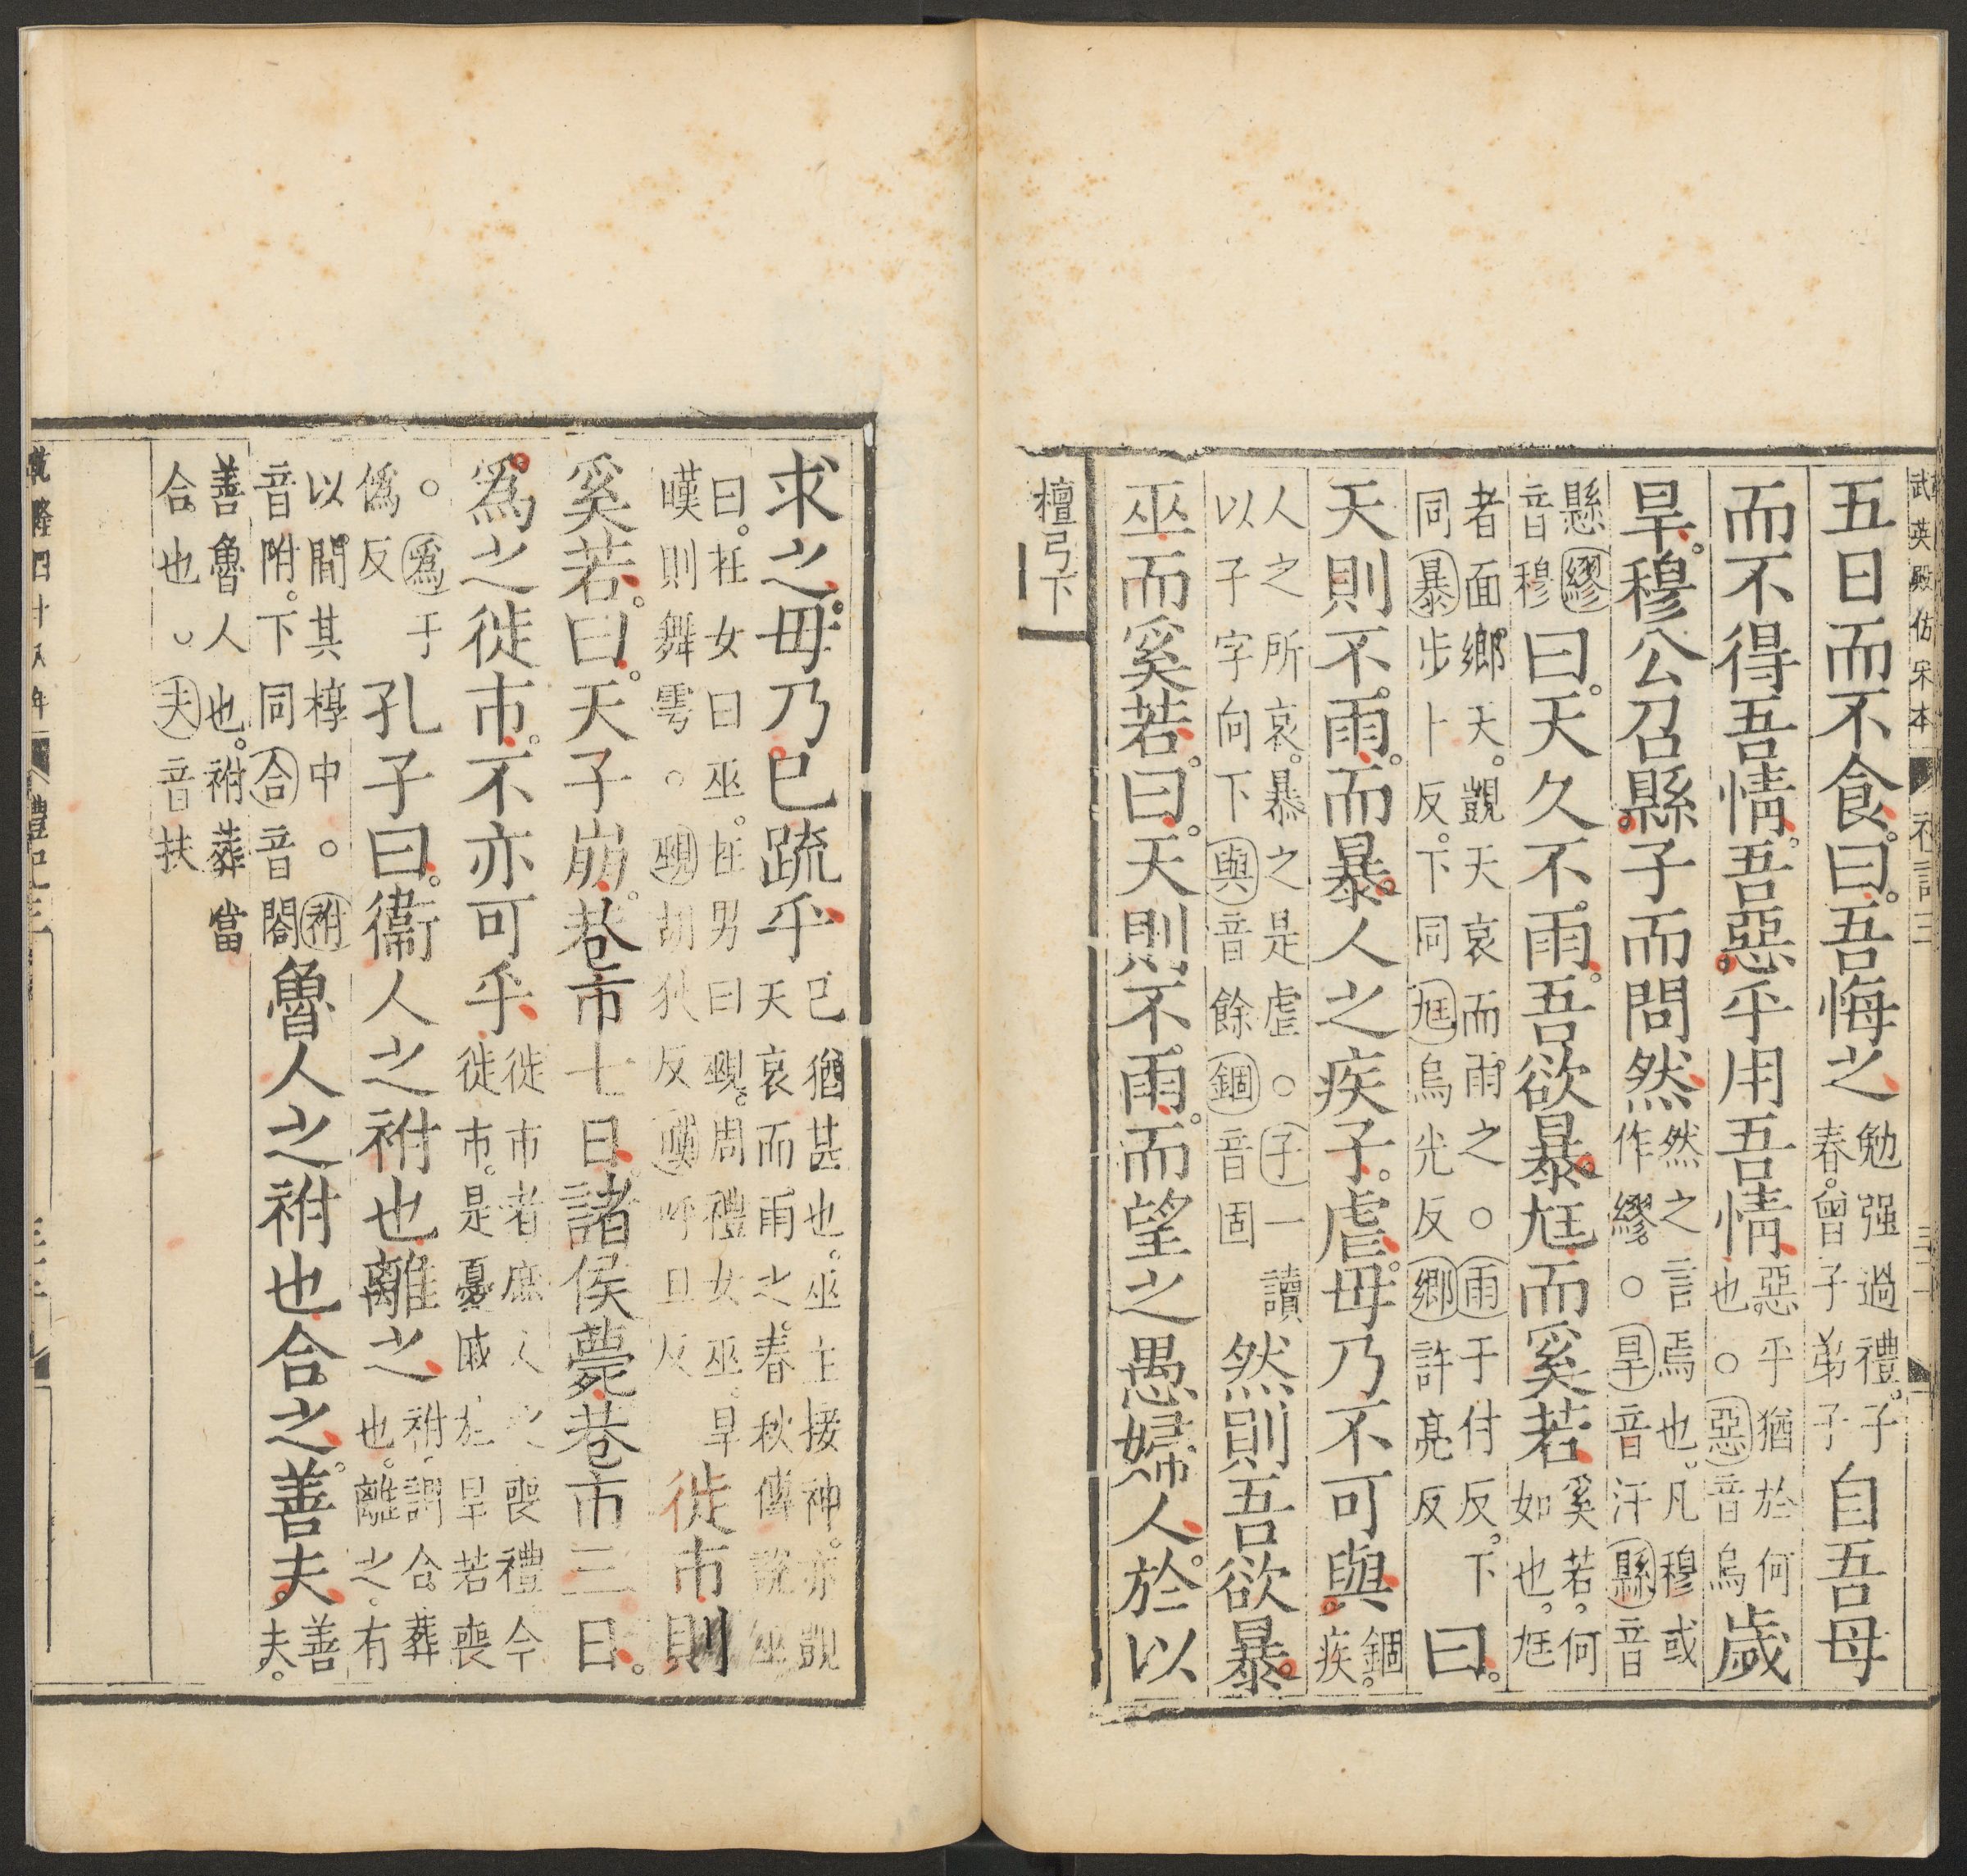 武英殿仿宋本
五日而不食曰吾悔之勉强過禮子春曾子弟子自吾母
而不得吾情吾惡乎用吾情惡乎猶於何也○惡音烏歲
旱穆公召縣子而問然然之言焉也凡穆或作繆○旱音汗縣音
懸繆音穆曰天久不雨吾欲暴尫而奚若奚若何如也尫
者面鄉天覬天哀而雨之○雨于付反下同暴步卜反下同尫烏光反鄉許亮反曰
天則不雨而暴人之疾子虐毋乃不可與錮疾
人之所哀暴之是虐○子一讀以子字向下與音餘錮音固然則吾欲暴
巫而奚若曰天則不雨而望之愚婦人於以
檀弓下
求之毋乃已疏乎已猶甚也巫主接神亦覬天哀而雨之春秋傳說巫
曰在女曰巫在男曰覡周禮女巫旱暵則舞雩○覡胡狄反暵呼旦反徙市則
奚若曰天子崩巷市七日諸侯薨巷市三日
爲之徙市不亦可乎徙市者庶人之喪禮今徙市是憂戚於旱若喪
○爲于僞反孔子曰衞人之祔也離之祔謂合葬也離之有
以間其椁中○祔音附下同合音閤魯人之祔也合之善夫善夫
善魯人也祔葬當合也○夫音扶
乾隆四十八年 禮記三